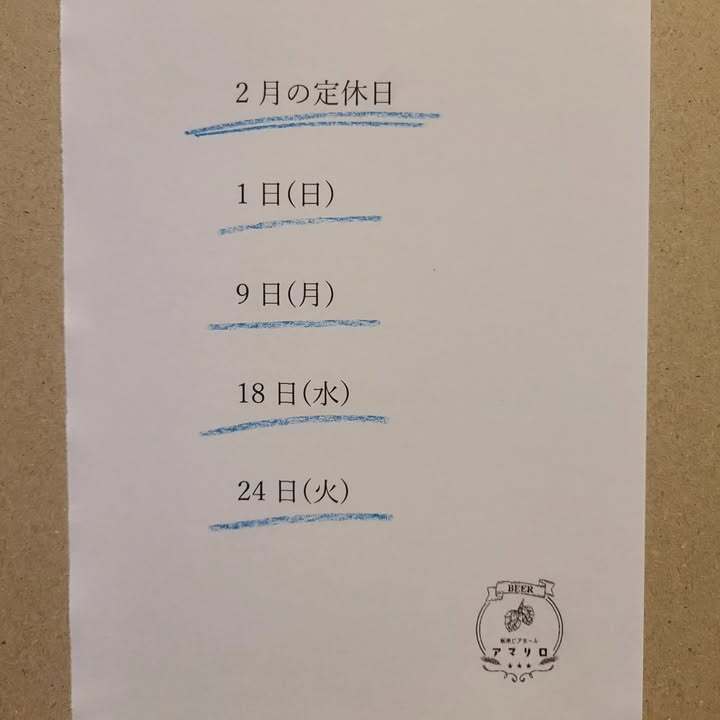 2月の定休日
1日(日)
9日(月)
18日(水)
24日(火)
BEER
アマリロ